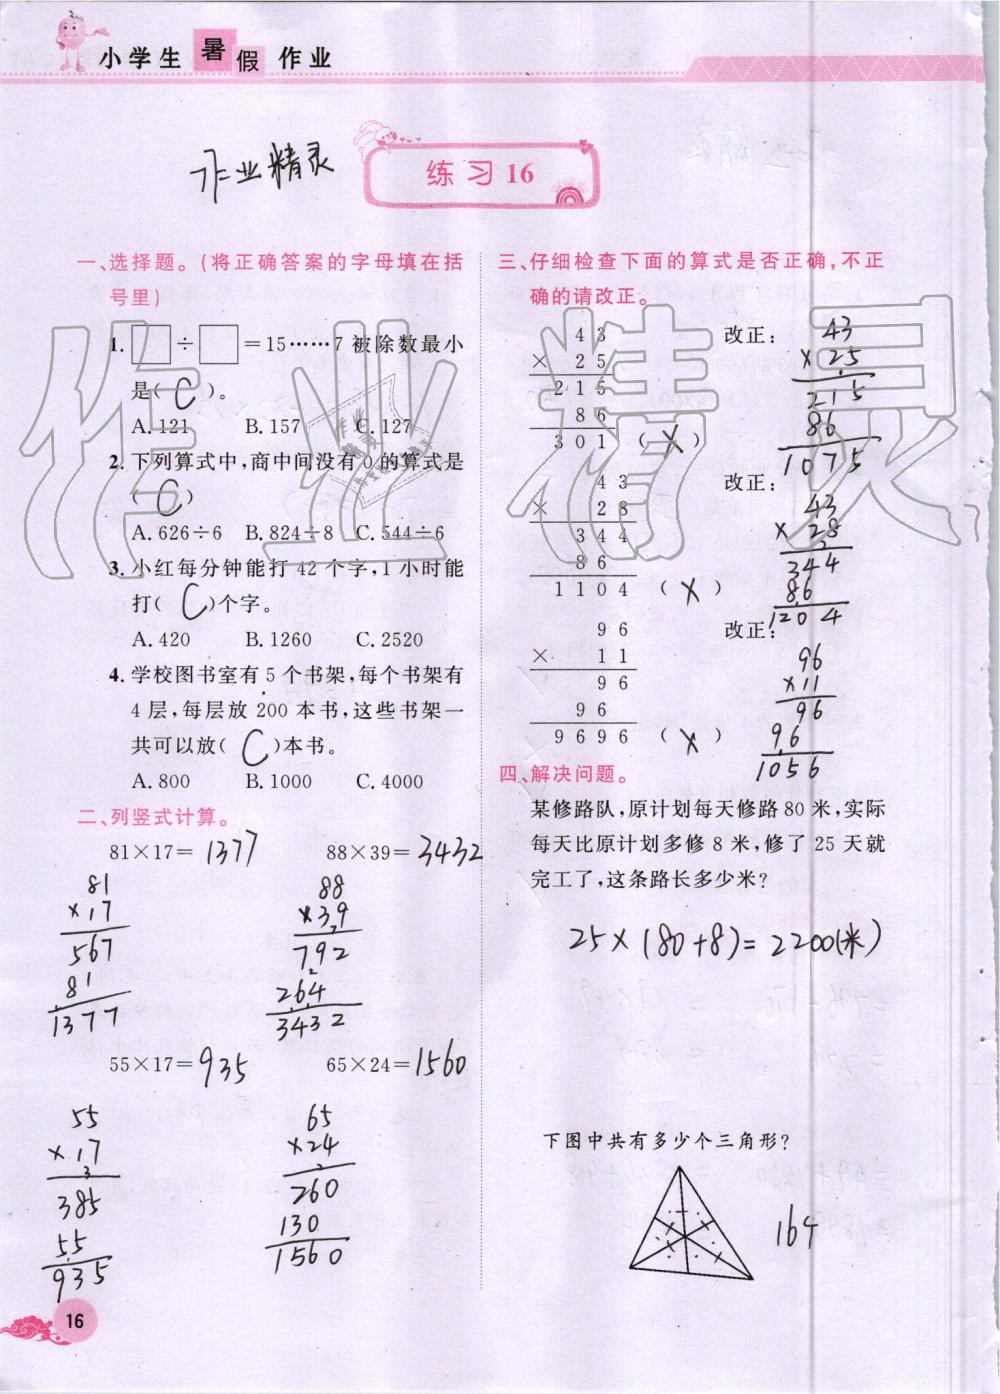 小学生 暑假 作业
作业精灵
练习 16
一、选择题。(将正确答案的字母填在括
号里)
1. □÷□=15……7 被除数最小
是( C )。
A. 121 B. 157 C. 127
2. 下列算式中,商中间没有 0 的算式是
( C )
A. 626÷6 B. 824÷8 C. 544÷6
3. 小红每分钟能打 42 个字,1 小时能
打( C )个字。
A. 420 B. 1260 C. 2520
4. 学校图书室有 5 个书架,每个书架有
4 层,每层放 200 本书,这些书架一
共可以放( C )本书。
A. 800 B. 1000 C. 4000
二、列竖式计算。
81×17= 1377 88×39= 3432
81
×17
567
81
1377
88
×39
2
792
2
264
3432
55×17= 935 65×24= 1560
55
×17
3
385
55
935
65
×24
2
260
130
1560
16
三、仔细检查下面的算式是否正确,不正
确的请改正。
4 3
× 2 5
2 1 5
8 6
3 0 1 ( × )
改正:
43
×25
215
86
1075
4 3
× 2 8
3 4 4
8 6
1 1 0 4 ( × )
改正:
43
×28
2
344
86
1204
9 6
× 1 1
9 6
9 6
9 6 9 6 ( × )
改正:
96
×11
96
96
1056
四、解决问题。
某修路队,原计划每天修路 80 米,实际
每天比原计划多修 8 米,修了 25 天就
完工了,这条路长多少米?
25×(80+8)=2200(米)
下图中共有多少个三角形?
16个
作业精灵